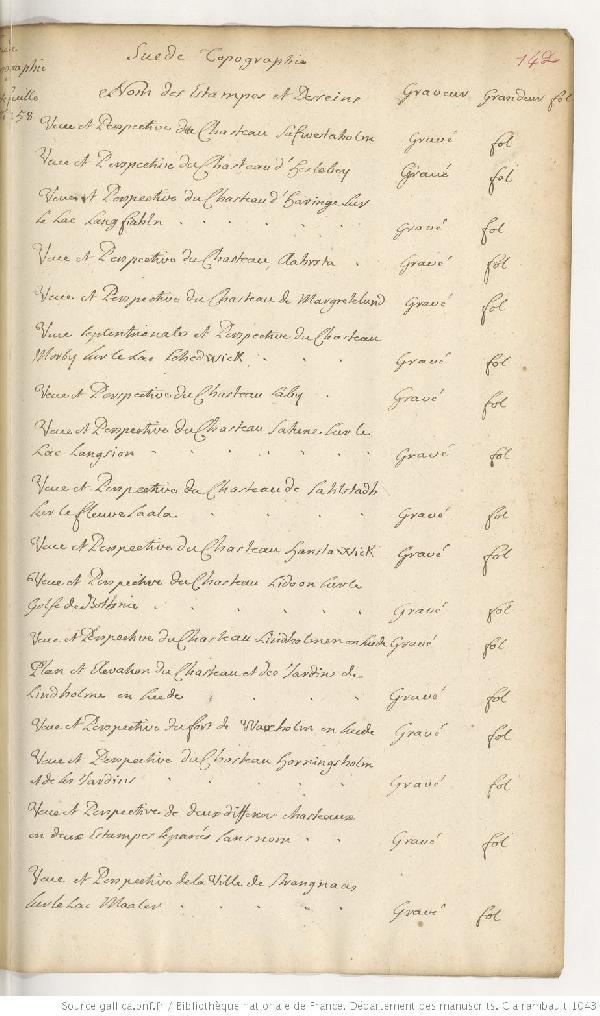 Suede Topographie 142
Nom des Estampes et Desseins Graveur Grandeur fol
58
Veue et Perspective du Chasteau Safwestaholm Gravé fol
Veue et Perspective du Chasteau d'Herlebey Gravé fol
Veue et Perspective du Chasteau d'Haringe sur
le Lac Gravé fol
Veue et Perspective du Chasteau Aahrsta Gravé fol
Veue et Perspective du Chasteau de Margretelund Gravé fol
Veue septentrionales et Perspective du Chasteau
Morby sur le Lac Gravé fol
Veue et Perspective du Chasteau Laby Gravé fol
Veue et Perspective du Chasteau sur le
Lac Langsion Gravé fol
Veue et Perspective du Chasteau de Sahlstadh
sur le fleuve Saala Gravé fol
Veue et Perspective du Chasteau Hansta Wick Gravé fol
Veue et Perspective du Chasteau Lidoon sur le
Golfe de Bothnie Gravé fol
Veue et Perspective du Chasteau Lindholmen en suede Gravé fol
Plan et Elevation du Chasteau et des Jardins de
Lindholme en suede Gravé fol
Veue et Perspective du fort de Waxholm en suede Gravé fol
Veue et Perspective du Chasteau Horningsholm
et de ses Jardins Gravé fol
Veue et Perspective de deux differens chasteaux
en deux Estampes separés sans nom Gravé fol
Veue et Perspective de la Ville de Strangnaas
sur le Lac Maaler Gravé fol
Source gallica.bnf.fr / Bibliothèque nationale de France. Département des manuscrits. Clairambault 1043